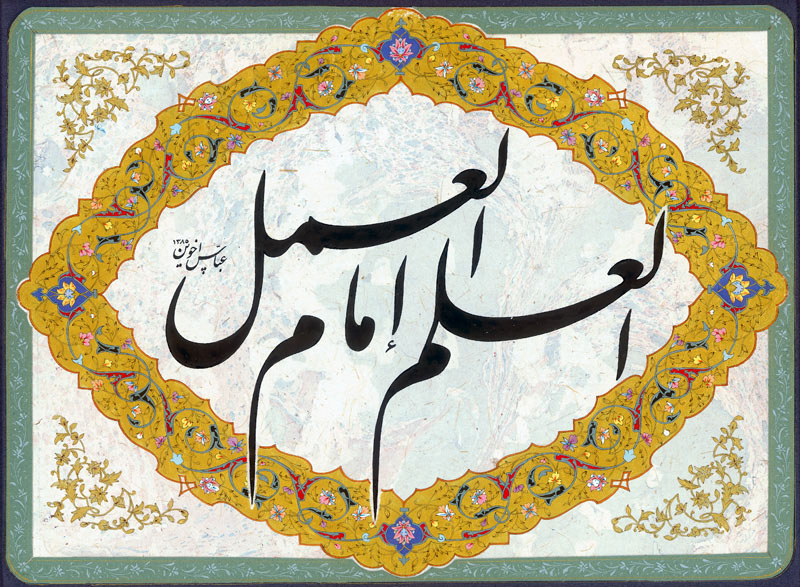 العلم إمام العمل
عباس اخوین
۱۳۸۵